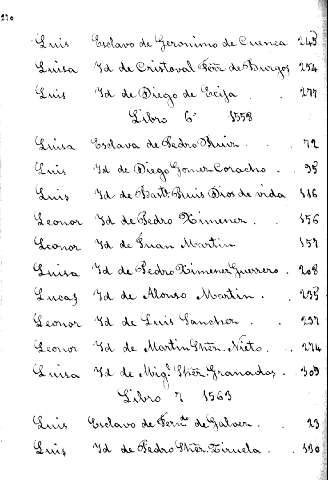 270
Luis Esclavo de Geronimo de Cuenca 243
Luisa Yd de Cristoval Ferz de Burgos 254
Luis Yd de Diego de Ecija 277
Libro 6º 1558
Luisa Esclava de Pedro Ruiz . . 72
Luis Yd de Diego Gomez Coracho . 95
Luis Yd de Bartᵉ Ruis Dios de vida 116
Leonor Yd de Pedro Ximenez . . 156
Leonor Yd de Juan Martin 157
Luisa Yd de Pedro Ximenez Guerrero . 208
Lucas Yd de Alonso Martin . . 235
Leonor Yd de Luis Sanchez . . 237
Leonor Yd de Martin Shez Nieto . . 274
Luisa Yd de Migˡ Shez Granados . 303
Libro 7 1563
Luis Esclavo de Fernᵈᵒ de Galvez . . 23
Luis Yd de Pedro Shez Tiruela . . 130